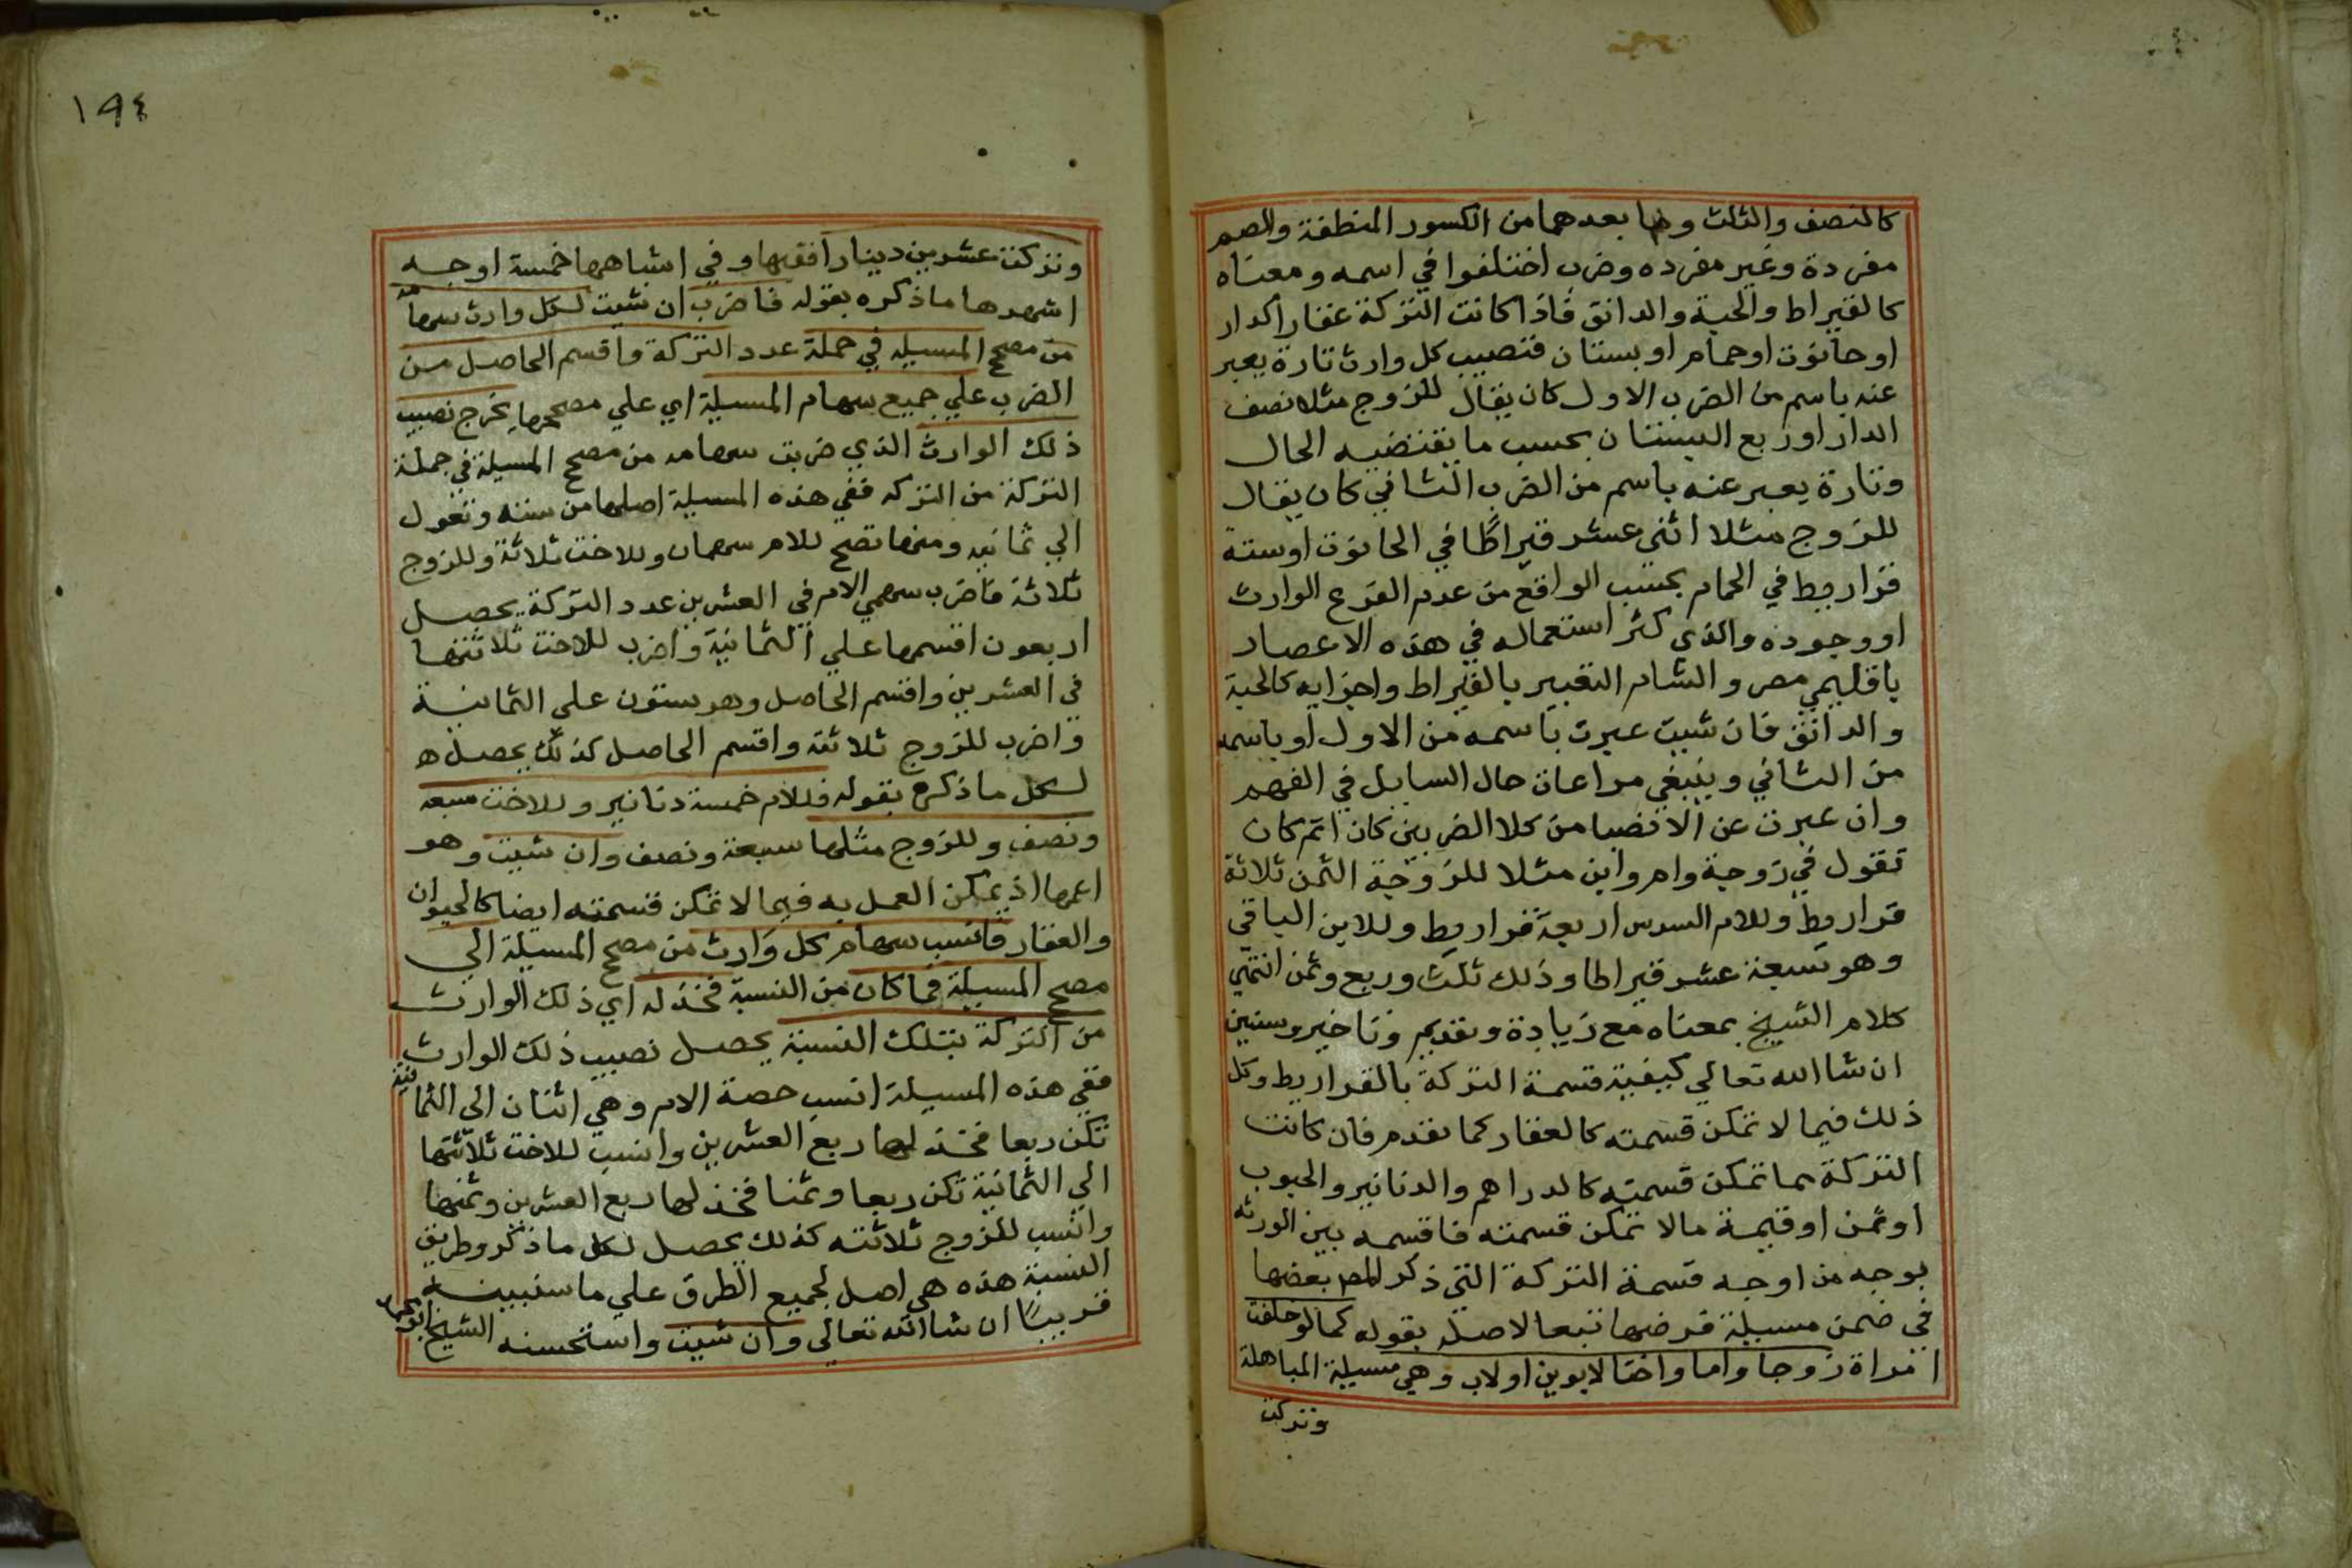 كالنصف والثلث وما بعدهما من الكسور المنطقة والصم
مفردة وغير مفرده وضرب اختلفوا في اسمه ومعناه
كالقيراط والحبة والدانق فاذا كانت التركة عقارا كدار
او حانوت او حمام او بستان فنصيب كل وارث تارة يعبر
عنه باسم من الضرب الاول كان يقال للزوج مثلا نصف
الدار او ربع البستان بحسب ما يقتضيه الحال
وتارة يعبر عنه باسم من الضرب الثاني كان يقال
للزوج مثلا اثنى عشر قيراطا في الحانوت او ستة
قراريط في الحمام بحسب الواقع من عدم الفرع الوارث
او وجوده والذي كثر استعماله في هذه الاعصار
باقليمي مصر والشام التعبير بالقيراط واجزايه كالحبة
والدانق فان شيت عبرت باسمه من الاول او باسمه
من الثاني وينبغي مراعاة حال السايل في الفهم
وان عبرت عن الانصبا من كلا الضربين كان اتم كان
تقول في زوجة وام وابن مثلا للزوجة الثمن ثلاثة
قراريط وللام السدس اربعة قراريط وللابن الباقي
وهو سبعة عشر قيراطا وذلك ثلث وربع وثمن انتهي
كلام الشيخ بمعناه مع زيادة وتقديم وتاخير وسنبين
ان شا الله تعالي كيفية قسمة التركة بالقراريط وكل
ذلك فيما لا تمكن قسمته كالعقار كما تقدم فان كانت
التركة مما تمكن قسمته كالدراهم والدنانير والحبوب
او ثمن او قيمة مالا تمكن قسمته فاقسمه بين الورثه
بوجه من اوجه قسمة التركة التي ذكر المص بعضها
في ضمن مسيلة فرضها تبعا لاصله بقوله كما لو خلفت
امراة زوجا واما واختا لابوين او لاب وهي مسيلة المباهلة
وتركت
١٩٤
وتركت عشرين دينارا فقيها وفي اشباهها خمسة اوجه
اشهرها ما ذكره بقوله فاضرب ان شيت لكل وارث سهامه
من مصحح المسيله في جملة عدد التركة واقسم الحاصل من
الضرب علي جميع سهام المسيلة اي علي مصححها يخرج نصيب
ذلك الوارث الذي ضربت سهامه من مصحح المسيلة في جملة
التركة من التركه ففي هذه المسيلة اصلها من سته وتعول
الي ثمانيه ومنها تصح للام سهمان وللاخت ثلاثة وللزوج
ثلاثة فاضرب سهمي الام في العشرين عدد التركة يحصل
اربعون اقسمها علي الثمانية واضرب للاخت ثلاثتها
في العشرين واقسم الحاصل وهو ستون علي الثمانية
واضرب للزوج ثلاثته واقسم الحاصل كذلك يحصل ه
لكل ما ذكره بقوله فللام خمسة دنانير وللاخت سبعه
ونصف وللزوج مثلها سبعة ونصف وان شيت وهو
اعمها اذ يمكن العمل به فيما لا تمكن قسمته ايضا كالحيوان
والعقار فانسب سهام كل وارث من مصحح المسيلة الي
مصحح المسيلة فما كان من النسبة فخذ له اي ذلك الوارث
من التركة بتلك النسبة يحصل نصيب ذلك الوارث
ففي هذه المسيلة انسب حصة الام وهي اثنان الي الثمانية
تكن ربعا فخذ لها ربع العشرين وانسب للاخت ثلاثتها
الي الثمانية تكن ربعا وثمنا فخذ لها ربع العشرين وثمنها
وانسب للزوج ثلاثته كذلك يحصل لكل ما ذكر وطريق
النسبة هذه هي اصل لجميع الطرق علي ما سنبينه
قريبًا ان شا الله تعالي وان شيت واستحسنه الشيخ